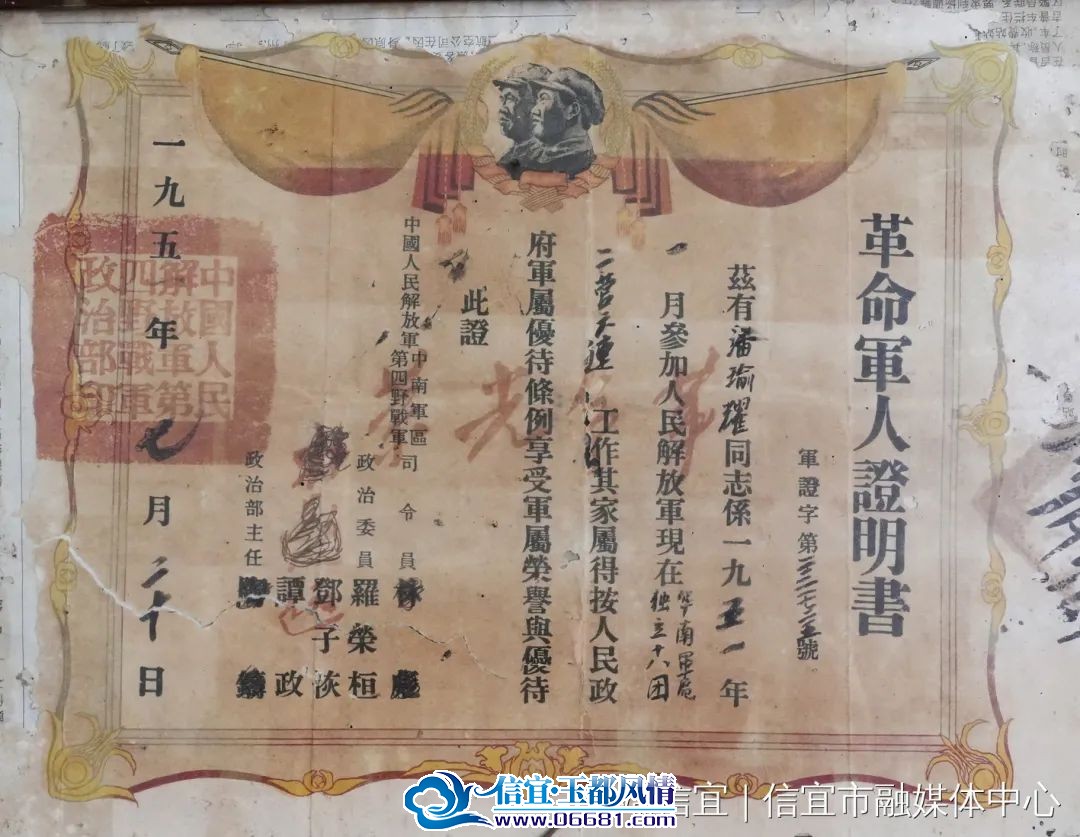 革命軍人證明書
軍證字第
號。
茲有潘瑜躍同志係一九五一年
一月參加人民解放軍現在
華南軍區
独立十八团
二营六連工作其家屬得按人民政
府軍屬優待條例享受軍屬榮譽與優待
此證
光
中國人民解放軍
中南軍區
第四野戰軍
司令員林彪
政治委員羅榮桓
鄧子恢
譚政
政治部主任陶鑄
一九五年七月二十日
中國人民
解放軍第
四野戰軍
政治部印
信宜·玉都风情
www.06681.com
信宜 | 信宜市融媒体中心